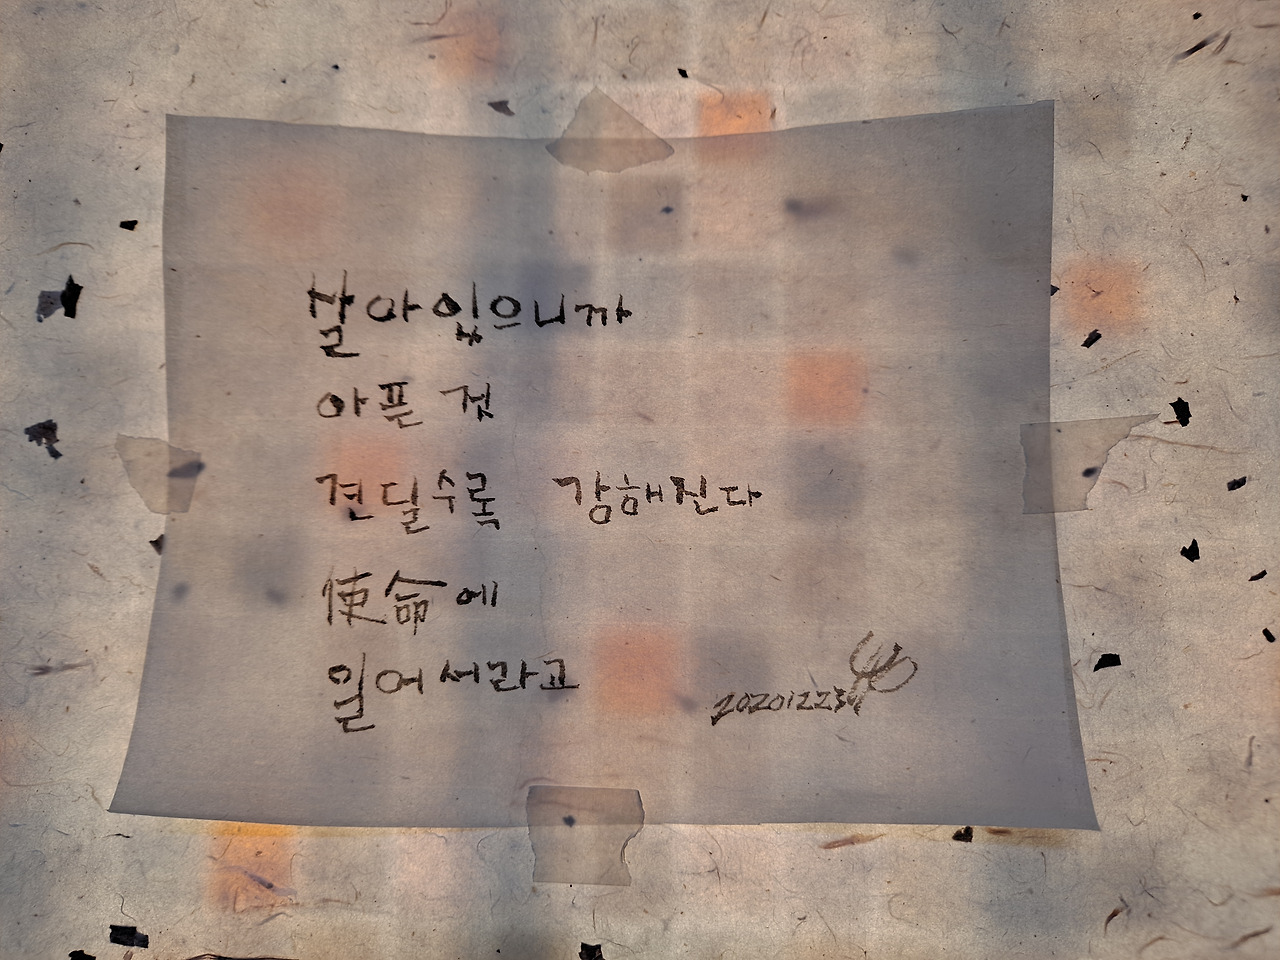 살아있으니까
아픈 것
견딜수록 강해진다
使命에
일어서라고
20201223